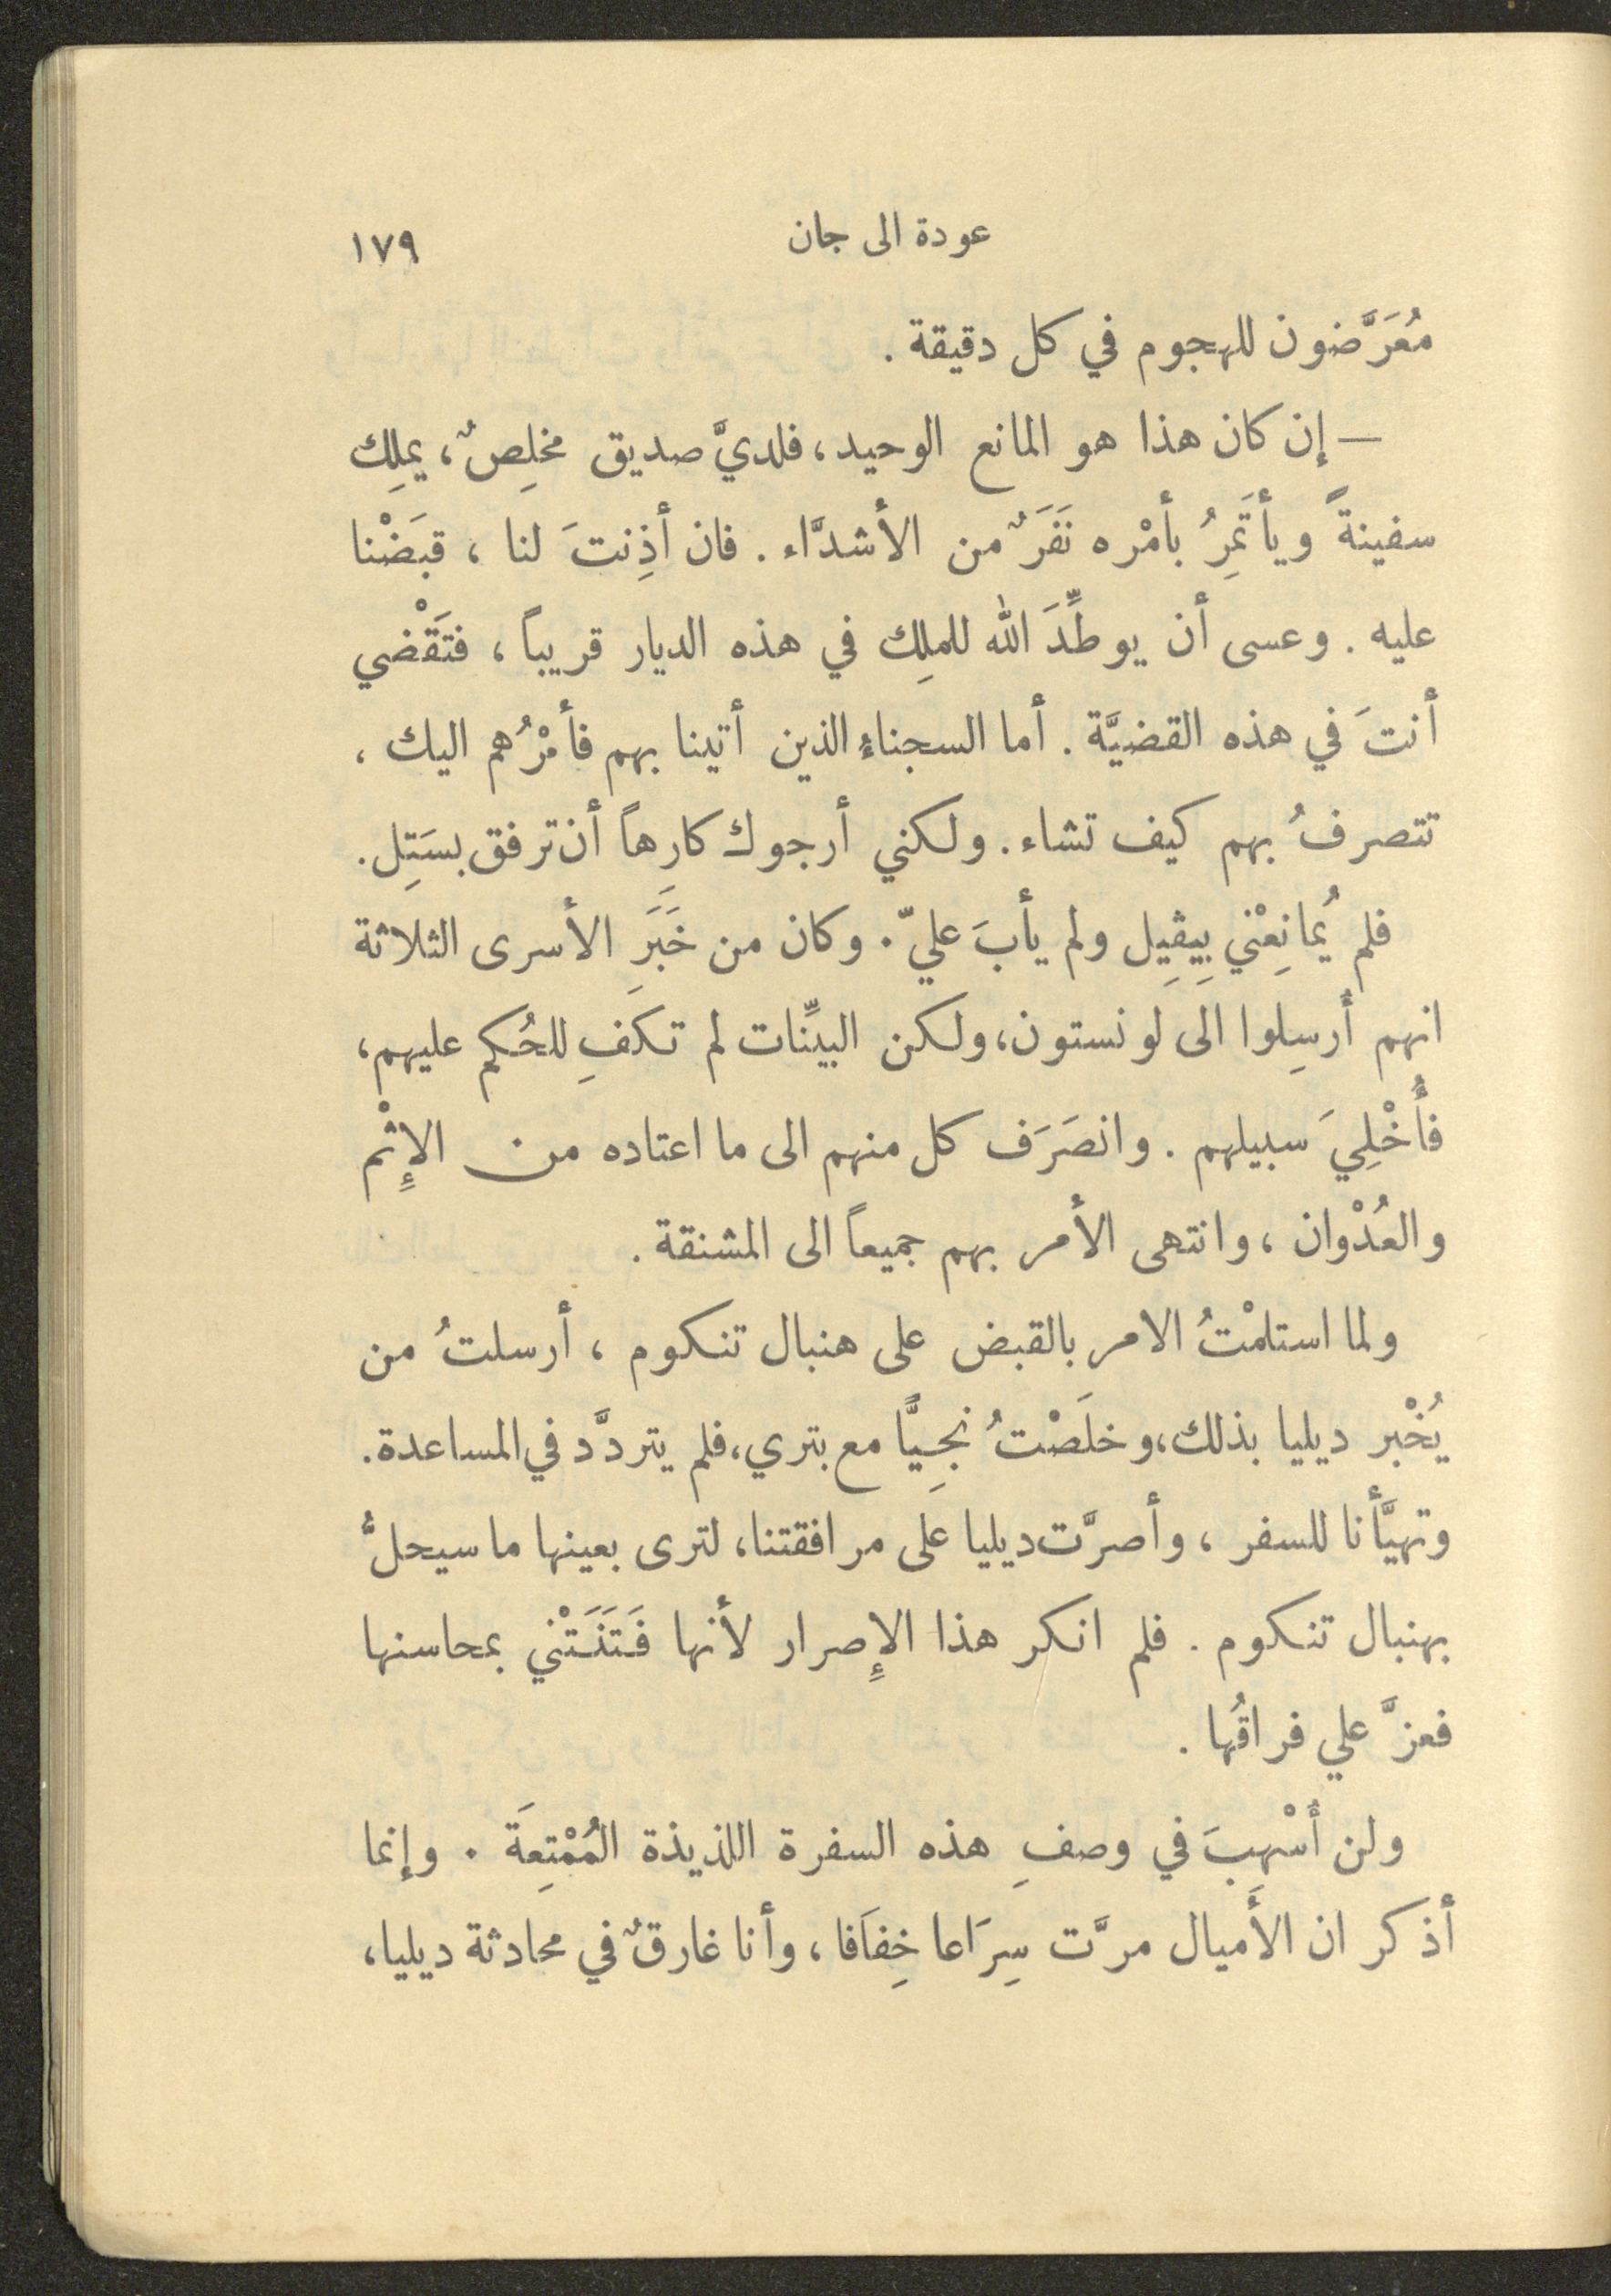 عودة الى جان ١٧٩
مُعَرَّضون للهجوم في كل دقيقة .
— إن كان هذا هو المانع الوحيد، فلديَّ صديق مخلِصٌ، يملِك
سفينةً ويأتَمِرُ بأمْره نَفَرٌ من الأشدَّاء . فان أذِنتَ لنا ، قبَضْنا
عليه . وعسى أن يوطِّدَ الله للملِك في هذه الديار قريباً ، فتَقْضي
أنتَ في هذه القضيَّة . أما السجناءُ الذين أتينا بهم فأمْرُهم اليك ،
تتصرفُ بهم كيف تشاء . ولكني أرجوك كارهاً أن ترفق بسَتِل .
فلم يُمانِعْني بِيڤِيل ولم يأبَ عليّ . وكان من خَبَرِ الأسرى الثلاثة
انهم أُرسِلوا الى لونستون، ولكن البيِّنات لم تكفِ للحُكم عليهم،
فأُخْلِيَ سبيلهم . وانصَرَف كل منهم الى ما اعتاده من الإِثْم
والعُدْوان ، وانتهى الأمر بهم جميعاً الى المشنقة .
ولما استلمْتُ الامر بالقبض على هنبال تنكوم ، أرسلتُ من
يُخْبر ديليا بذلك، وخلَصْتُ نجِيًّا مع بتري، فلم يتردَّد في المساعدة .
وتهيَّأنا للسفر ، وأصرَّت ديليا على مرافقتنا، لترى بعينها ما سيحلُّ
بهنبال تنكوم . فلم انكر هذا الإِصرار لأنها فَتَنَتْني بمحاسنها
فعزَّ علي فراقُها .
ولن أُسْهِبَ في وصفِ هذه السفرة اللذيذة المُمْتِعَة . وإنما
أذكر ان الأَميال مرَّت سِرَاعا خِفاَفا ، وأنا غارقٌ في محادثة ديليا،